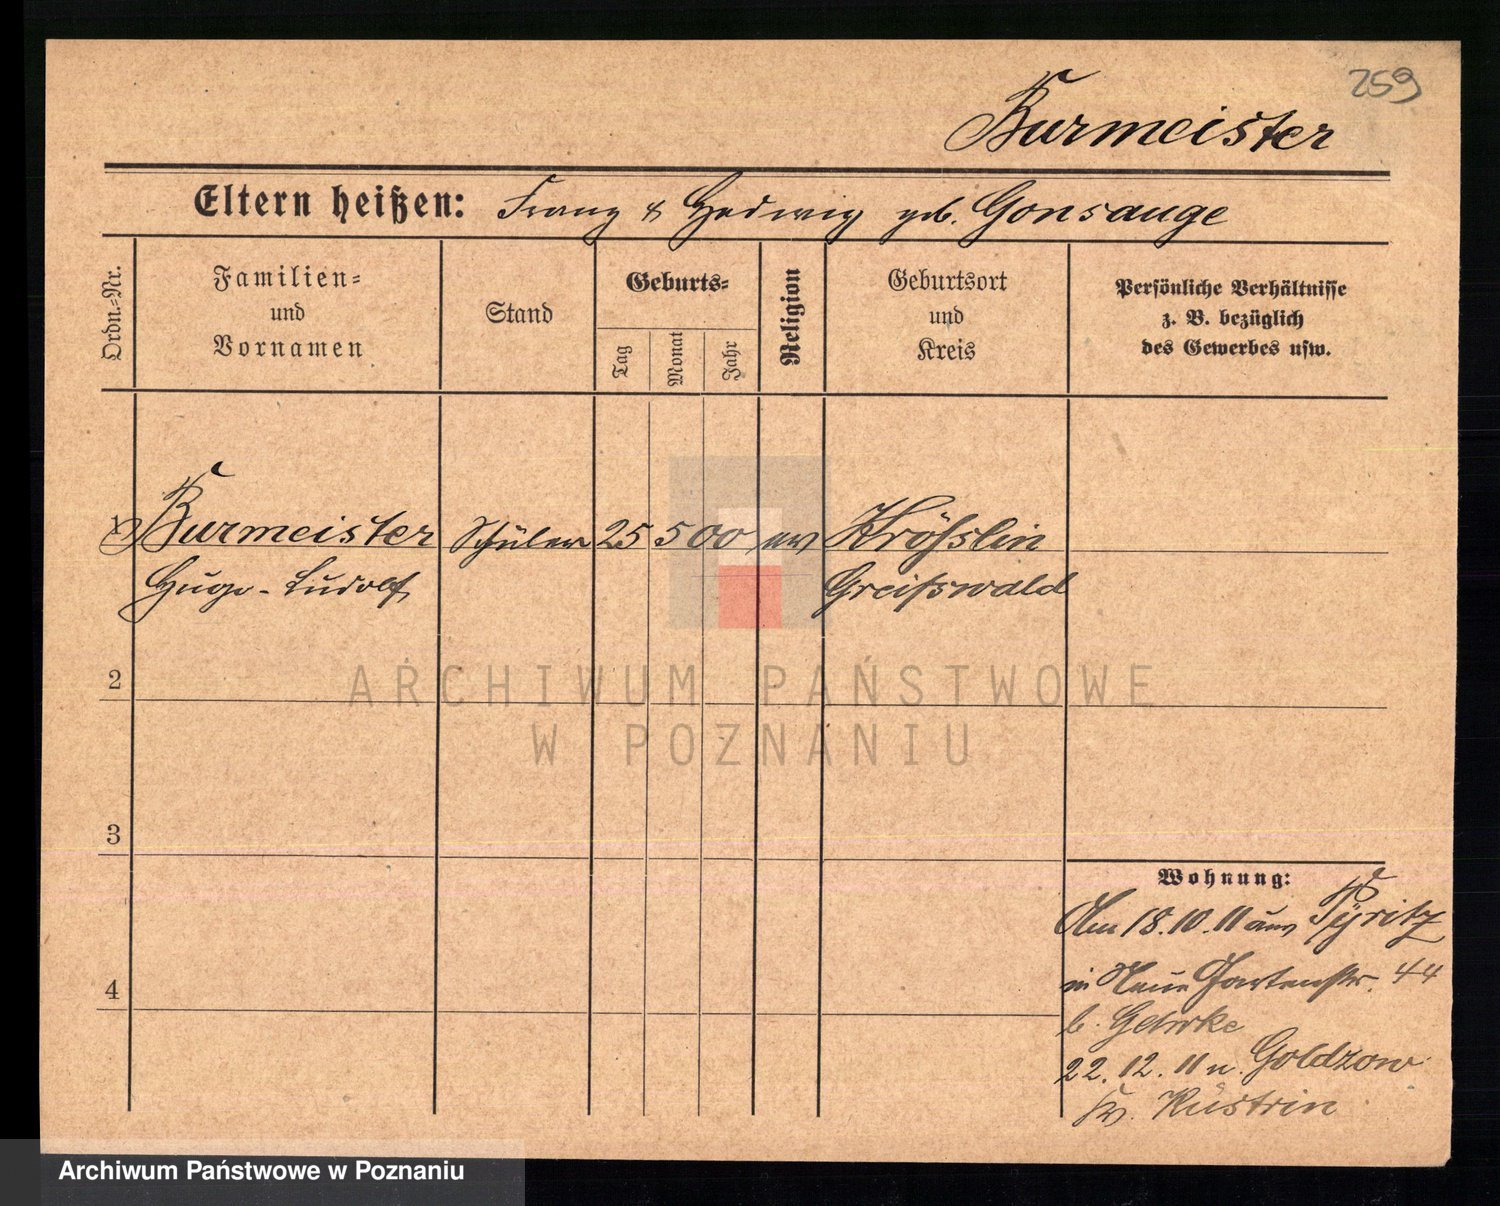 259
Burmeister
Eltern heißen: Franz & Hedwig geb. Gonsauge
Ordn.-Nr.
Familien-
und
Vornamen
Stand
Geburts-
Tag
Monat
Jahr
Religion
Geburtsort
und
Kreis
Persönliche Verhältnisse
z. B. bezüglich
des Gewerbes usw.
1 Burmeister Schüler 25 5 00 ev Kröhslin
Hugo-Ludolf Greifswald
2
3
4
Wohnung:
Am 18.10.11 aus Pyritz
in Neue Gartenstr. 44
b. Gehrke
22.12.11 n. Goldzow
Kr. Küstrin
ARCHIWUM PAŃSTWOWE
W POZNANIU
Archiwum Państwowe w Poznaniu